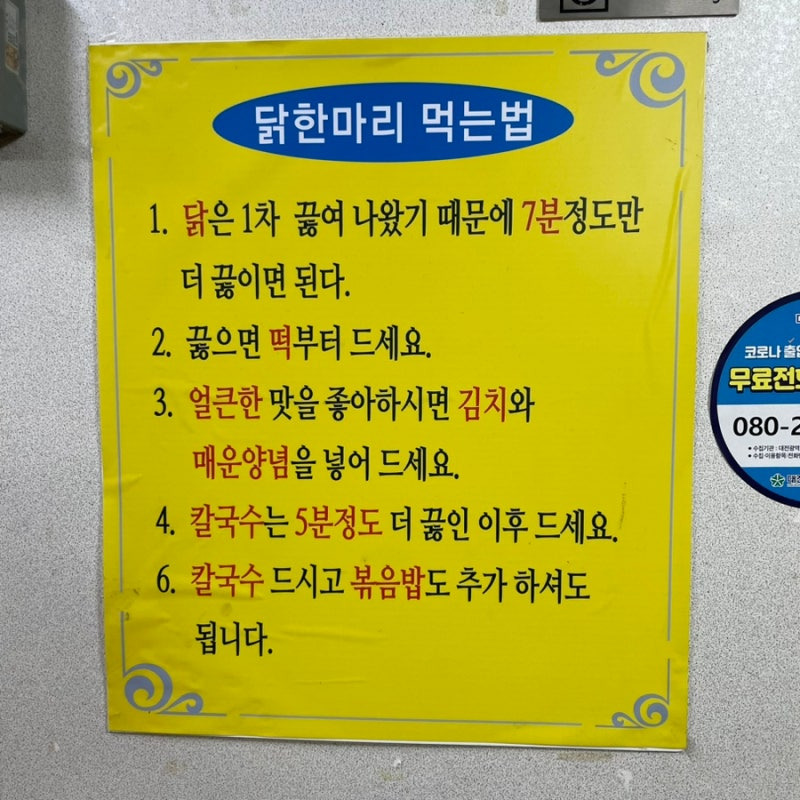 닭한마리 먹는법
1. 닭은 1차 끓여 나왔기 때문에 7분정도만
더 끓이면 된다.
2. 끓으면 떡부터 드세요.
3. 얼큰한 맛을 좋아하시면 김치와
매운양념을 넣어 드세요.
4. 칼국수는 5분정도 더 끓인 이후 드세요.
6. 칼국수 드시고 볶음밥도 추가 하셔도
됩니다.
코로나
무료전화
080-2
• 수집기관 : 대전광역